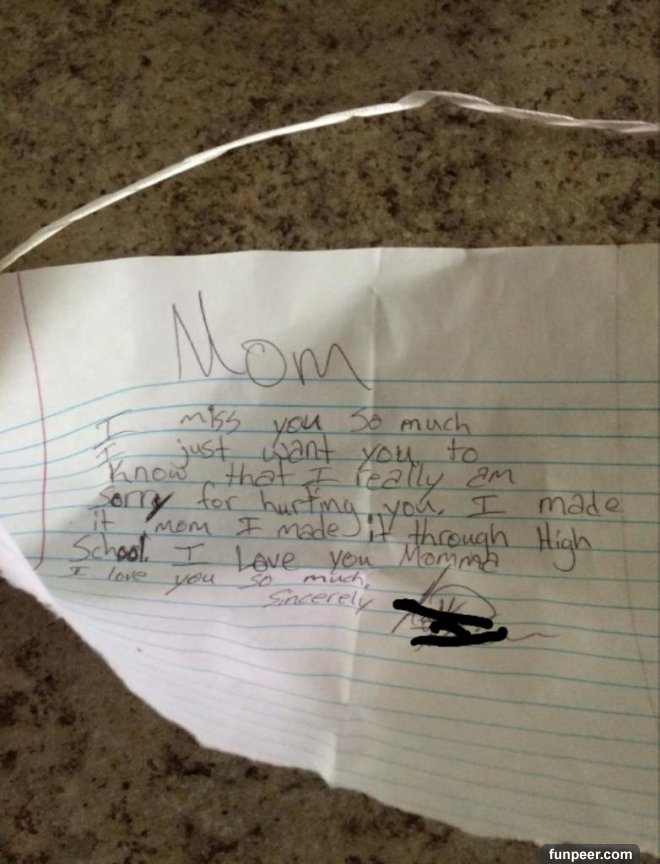 Mom
I miss you so much
I just want you to
know that I really am
Sorry for hurting you. I made
it mom I made it through High
School. I Love you Momma
I love you so much.
Sincerely
funpeer.com